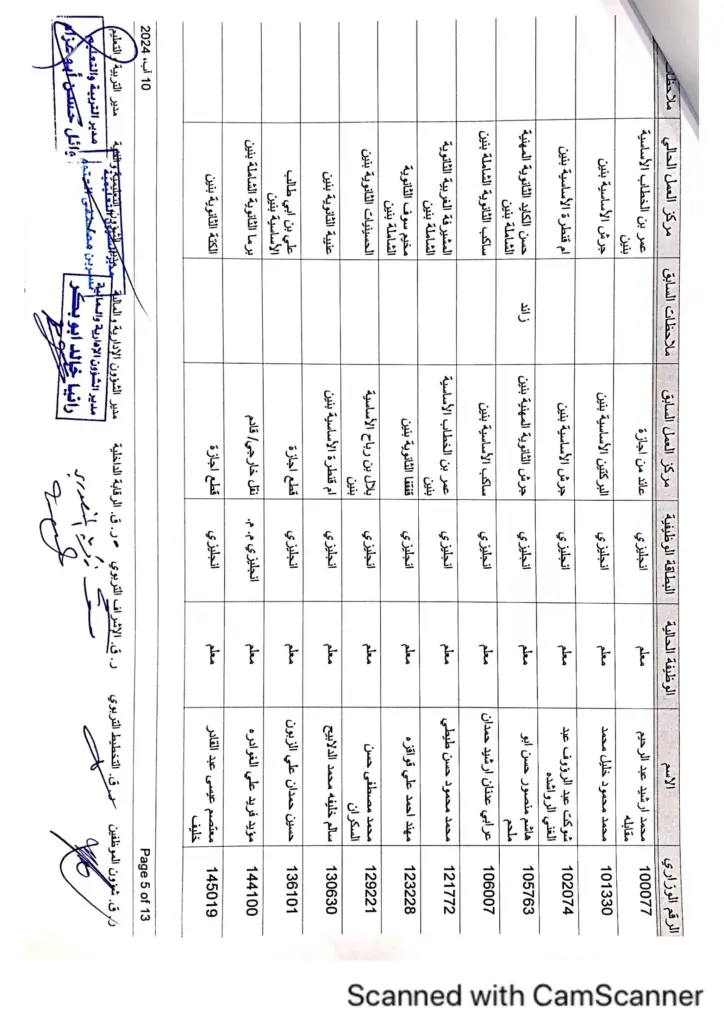 الرقم الوزاري الاسم الوظيفة الحالية البطاقة الوظيفية مركز العمل السابق ملاحظات السابق مركز العمل الحالي ملاحظات
100077 محمد ارشيد عبد الرحيم مقابله معلم انجليزي عائد من اجازة عمر بن الخطاب الأساسية بنين
101330 محمد محمود خليل محمد معلم انجليزي البركتين الأساسية بنين جرش الأساسية بنين
102074 شوكت عبد الرزوف عبد الغني الرواشده معلم انجليزي جرش الأساسية بنين ام قنطرة الأساسية بنين
105763 هاشم منصور حسن ابو ملحم معلم انجليزي جرش الثانوية المهنية بنين زائد حسن الكايد الثانوية المهنية الشاملة بنين
106007 عرابي عدنان ارشيد حمدان معلم انجليزي ساكب الأساسية بنين ساكب الثانوية الشاملة بنين
121772 محمد محمود حسن طيطي معلم انجليزي عمر بن الخطاب الأساسية بنين المشيرفة الغربية الثانوية الشاملة بنين
123228 مهند احمد علي قواقزه معلم انجليزي قفقفا الثانوية بنين مخيم سوف الثانوية الشاملة بنين
129221 محمد مصطفى حسن السكران معلم انجليزي بلال بن رباح الأساسية بنين الحسينيات الثانوية بنين
130630 سالم خليفه محمد الدلابيح معلم انجليزي ام قنطرة الأساسية بنين عنيبة الثانوية بنين
136101 حسين حمدان علي الزبون معلم انجليزي قطع اجازة علي بن ابي طالب الأساسية بنين
144100 مؤيد فريد علي الغوادره معلم انجليزي م. م. نقل خارجي/ قادم برما الثانوية الشاملة بنين
145019 معتصم عيسى عبد القادر خليف معلم انجليزي قطع اجازة الكتة الثانوية بنين
Page 5 of 13
10 آب، 2024
ر. ق. شؤون الموظفين ر. ق. التخطيط التربوي ر. ق. الاشراف التربوي ر. ق. الرقابة الداخلية مدير الشؤون الإدارية والمالية مدير الشؤون التعليمية والفنية مدير التربية والتعليم
مدير الشؤون الادارية والمالية
رانيا خالد ابو بكر
مدير التربية والتعليم
وائل حسن أبو عزام
Scanned with CamScanner